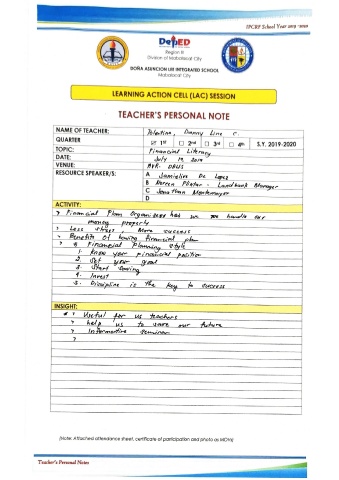 IPCRF School Year 2019 -2020
DepED
Region III
Division of Mabalacat City
DOÑA ASUNCION LEE INTEGRATED SCHOOL
Mabalacat City
LEARNING ACTION CELL (LAC) SESSION
TEACHER'S PERSONAL NOTE
NAME OF TEACHER: Danny Line C.
QUARTER ☑ 1st ☐ 2nd ☐ 3rd ☐ 4th S.Y. 2019-2020
TOPIC: Financial Literacy
DATE: July 19, 2019
VENUE: AVR- DALIS
RESOURCE SPEAKER/S: A De Lopez
B Landbank Manager
C Jonathan
D
ACTIVITY:
> Financial Plan Organizes has we handle our
money properly
> Less stress, More success
> Benefits of having financial plan
> 5 Financial Planning Style
1. Know your financial position
2. Set your goal
3. Start saving
4. Invest
5. Discipline is the key to success
INSIGHT:
> Useful for us teachers
> help us to save our future
> Informative seminar
>
(Note: Attached attendance sheet, certificate of participation and photo as MOVs)
Teacher's Personal Notes